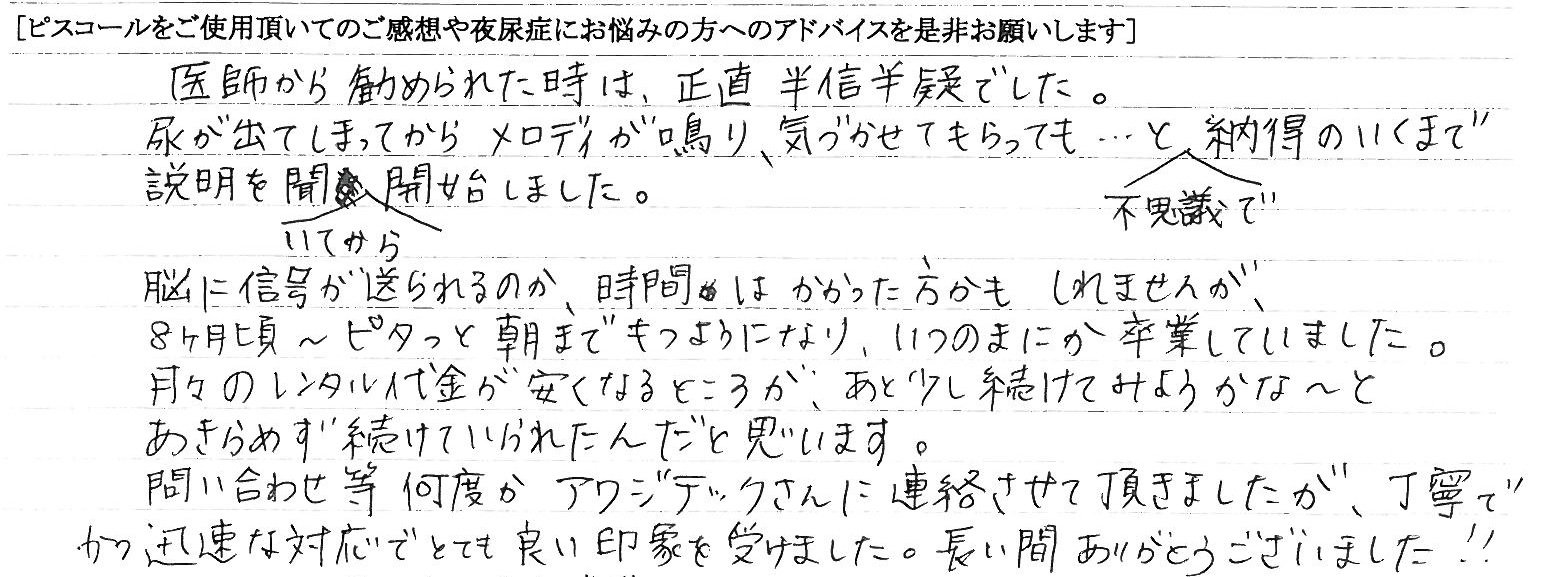 [ピスコールをご使用頂いてのご感想や夜尿症にお悩みの方へのアドバイスを是非お願いします]
医師から勧められた時は、正直 半信半疑でした。
尿が出てしまってから メロディが鳴り、気づかせてもらっても…と不思議で納得のいくまで
説明を聞いてから開始しました。
脳に信号が送られるのか、時間は かかった方かも しれませんが、
8ヶ月頃～ピタっと朝までもつようになり、いつのまにか卒業していました。
月々のレンタル代金が安くなるところが、あと少し続けてみようかな～と
あきらめず続けていられたんだと思います。
問い合わせ等 何度か アワジテックさんに連絡させて頂きましたが、丁寧で
かつ迅速な対応でとても良い印象を受けました。長い間 ありがとうございました!!